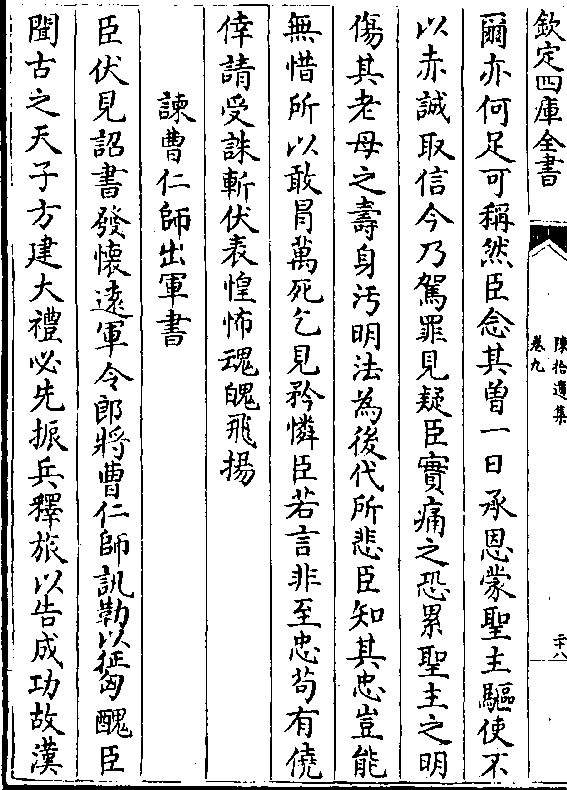 欽定四庫全書
陳拾遺集
卷九
二十八
爾亦何足可稱然臣念其曽一日承恩蒙聖主驅使不
以赤誠取信今乃駕罪見疑臣實痛之恐累聖主之明
傷其老母之壽身汚明法為後代所悲臣知其忠豈能
無惜所以敢冐萬死乞見矜憐臣若言非至忠茍有僥
倖請受誅斬伏表惶怖魂魄飛揚
諫曹仁師出軍書
臣伏見詔書發懷遠軍令郎將曹仁師訊勒以征匈醜臣
聞古之天子方建大禮必先振兵釋旅以告成功故漢